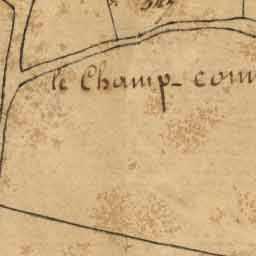 le Champ-com